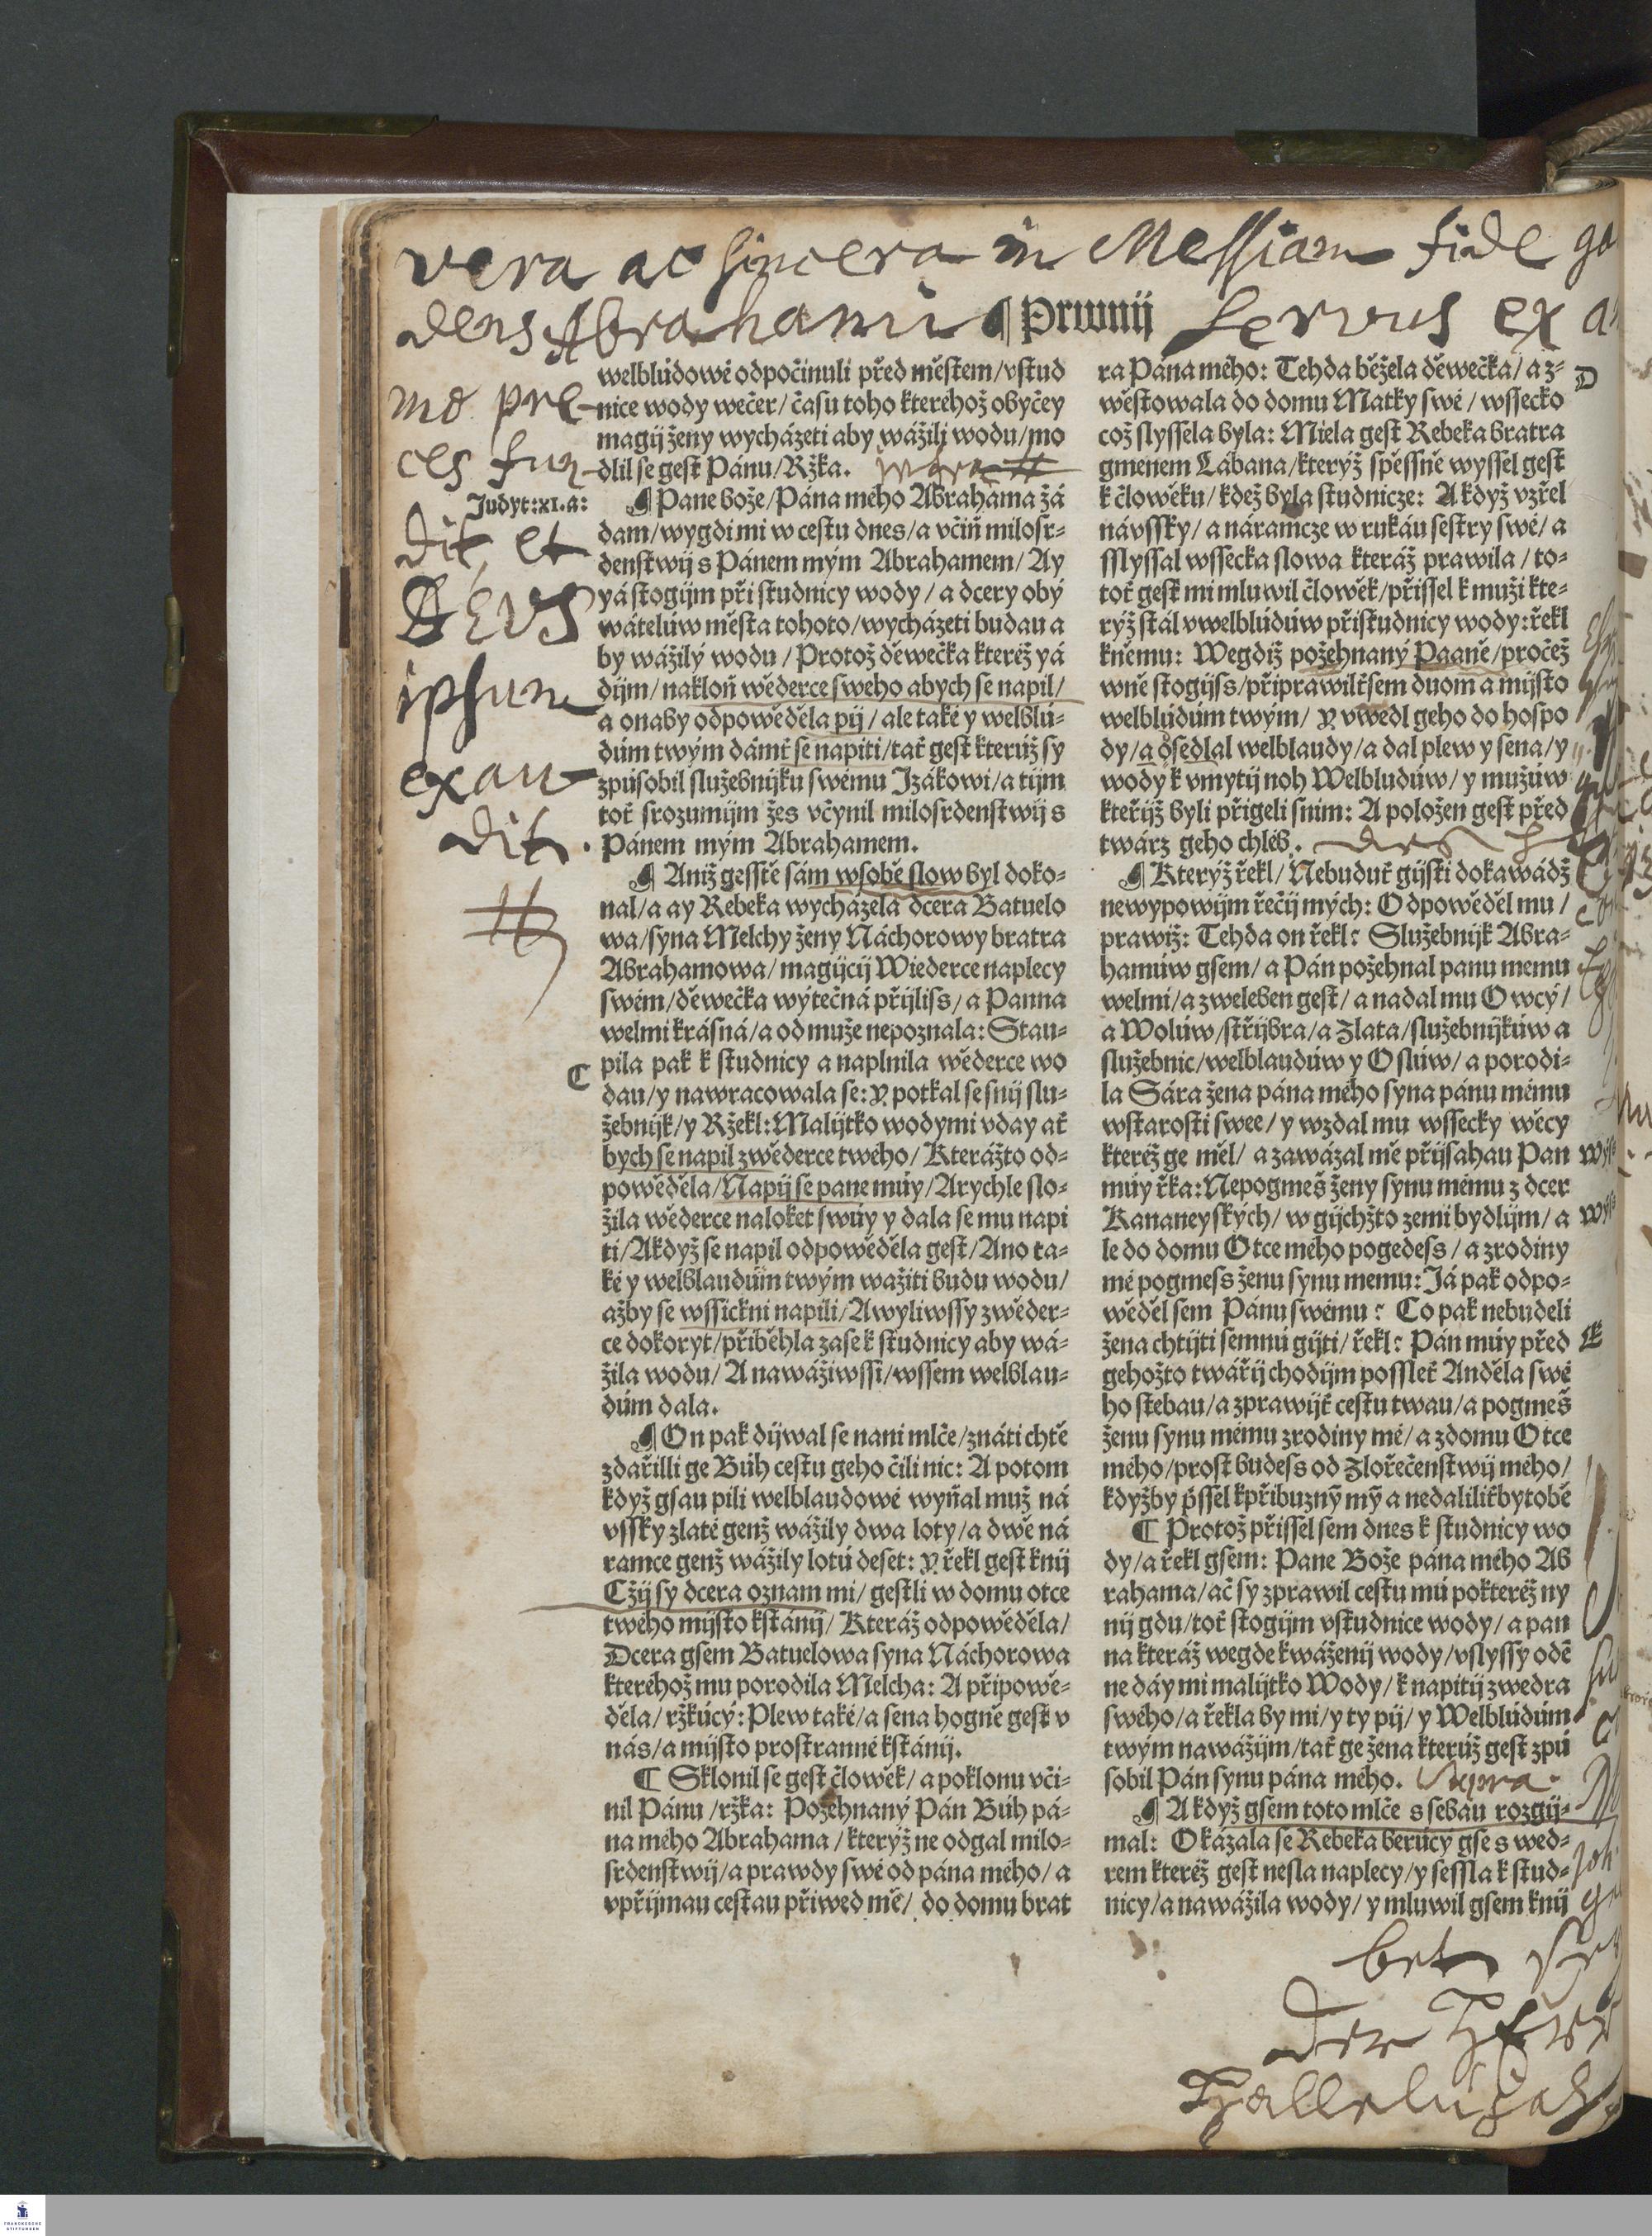 vera ac sincera in Messiam fide
dens Abrahami ¶ Prwnij servus ex
mo pre
ces fun
Judyt:xi.a:
dit, et
DEUS
ipsum
exau
dit.
welblúdowé odpočinuli před městem/vstud
nice wody wečer/času toho kteréhož obyčey
magij ženy wycházeti aby wážilj wodu/mo
dlil se gest Pánu/Ržka.
¶ Pane bože/Pána mého Abraháma žá
dam/wygdi mi w cestu dnes/a včiň milosr-
denstwij s Pánem mým Abrahamem/Ay
yá stogijm při studnicy wody/a dcery obý
watelúw města tohoto/wycházeti budau a
by wážilý wodu/Protož děwečka kteréž yá
dijm/nakloň wěderce swého abych se napil/
a onaby odpowěděla pij/ale také y welblú-
dúm twým dámť se napiti/tať gest kterúž sy
zpúsobil služebnijku swému Jzákowi/a tijm
toť srozumijm žes včynil milosrdenstwij s
Pánem mým Abrahamem.
¶ Aniž gesstě sám wsobě slow byl doko-
nal/a ay Rebeka wycházela dcera Batuelo
wa/syna Melchy ženy Náchorowy bratra
Abrahamowa/magijcij Wiederce naplecy
swém/děwečka wýtečná přijliss/a Panna
welmi krásná/a od muže nepoznala: Stau-
C
pila pak k studnicy a naplnila wěderce wo
dau/y nawracowala se: Y potkal se snij slu-
žebnijk/y Ržekl: Malijtko wody mi vday ať
bych se napil zwěderce twého/Kterážto od-
powěděla/Napij se pane múy/A rychle slo-
žila wěderce naloket swúy y dala se mu napi
ti/A když se napil odpowěděla gest/Ano ta-
ké y welblaudúm twým wažiti budu wodu/
ažby se wssickni napili/A wyliwssy zwěder-
ce dokoryt/přiběhla zase k studnicy aby wá-
žila wodu/A nawážiwssi/wssem welblau-
dúm dala.
¶ On pak dijwal se nani mlče/znáti chtě
zdařilli ge Búh cestu geho čili nic: A potom
když gsau pili welblaudowé wyňal muž ná
vssky zlaté genž wážily dwa loty/a dwě ná
ramce genž wážily lotú deset: Y řekl gest knij
Cžij sy dcera oznam mi/gestli w domu otce
twého mijsto kstánij/Kteráž odpowěděla/
Dcera gsem Batuelowa syna Náchorowa
kteréhož mu porodila Melcha: A připowě-
děla/ržkúcý: Plew také/a sena hogně gest v
nás/a mijsto prostranné kstánij.
¶ Sklonil se gest člowěk/a poklonu vči-
nil Pánu/ržka: Požehnaný Pán Búh pá-
na mého Abrahama/kterýž ne odgal milo-
srdenstwij/a prawdy swé od pána mého/a
vpřijmau cestau přiwed mě/do domu brat
ra Pána mého: Tehda běžela děwečka/a z-
D
wěstowala do domu Matky swé/wssecko
což slyssela byla: Miela gest Rebeka bratra
gmenem Lábana/kterýž spěssně wyssel gest
k člowěku/kdež byla studnicze: A když vzřel
návssky/a náramcze w rukáu sestry swé/a
sslyssal wssecka slowa kteráž prawila/to-
toť gest mi mluwil člowěk/přissel k muži kte-
rýž stál vwelblúdúw při studnicy wody: řekl
kněmu: Wegdiž požehnaný Paaně/pročěž
wně stogijss/připrawilťsem duom a mijsto
welblúdúm twým/Y vwedl geho do hospo
dy/a odsedlal welblaudy/a dal plew y sena/y
wody k vmytij noh Welbludúw/y mužúw
kteřijž byli přigeli snim: A položen gest před
twárz geho chléb.
¶ Kterýž řekl/Nebuduť gijsti dokawádž
newypowijm řečij mých: Odpowěděl mu/
prawiž: Tehda on řekl: Služebnijk Abra-
hamúw gsem/a Pán požehnal panu memu
welmi/a zweleben gest/a nadal mu Owcý/
a Wolúw/střijbra/a Zlata/služebnijkúw a
služebnic/welblaudúw y Oslúw/a porodi-
la Sára žena pána mého syna pánu mému
wstarosti swee/y wzdal mu wssecky wěcy
kteréž ge měl/a zawázal mě přijsahau Pan
múy řka: Nepogmeš ženy synu mému z dcer
Kananeyských/w gijchžto zemi bydlijm/a
le do domu Otce mého pogedess/a zrodiny
mé pogmess ženu synu memu: Já pak odpo-
wěděl sem Pánu swému: Co pak nebudeli
žena chtijti semnú gijti/řekl: Pán múy před
E
gehožto twářij chodijm possleť Anděla swé
ho stebau/a zprawijť cestu twau/a pogmeš
ženu synu mému zrodiny mé/a zdomu Otce
mého/prost budess od Zlořečenstwij mého/
když by přssel kpřibuzný mý a nedaliliť by tobě
¶ Protož přissel sem dnes k studnicy wo
dy/a řekl gsem: Pane Bože pána mého Ab
rahama/ač sy zprawil cestu mú pokteréž ny
nij gdu/toť stogijm vstudnice wody/a pan
na kteráž wegde kwáženij wody/vslyssy odě
ne dáy mi malijtko Wody/k napitij zwedra
swého/a řekla by mi/y ty pij/y Welblúdúm
twým nawážijm/tať ge žena kterúž gest zpú
sobil Pán synu pána mého. Supra.
¶ A když gsem toto mlče s sebau rozgij-
mal: Okázala se Rebeka berúcy gse s wed-
rem kteréž gest nesla naplecy/y sessla k stud-
nicy/a nawážila wody/y mluwil gsem knij
bet
der HErr
Hallelujah
FRANCKESCHE
STIFTUNGEN